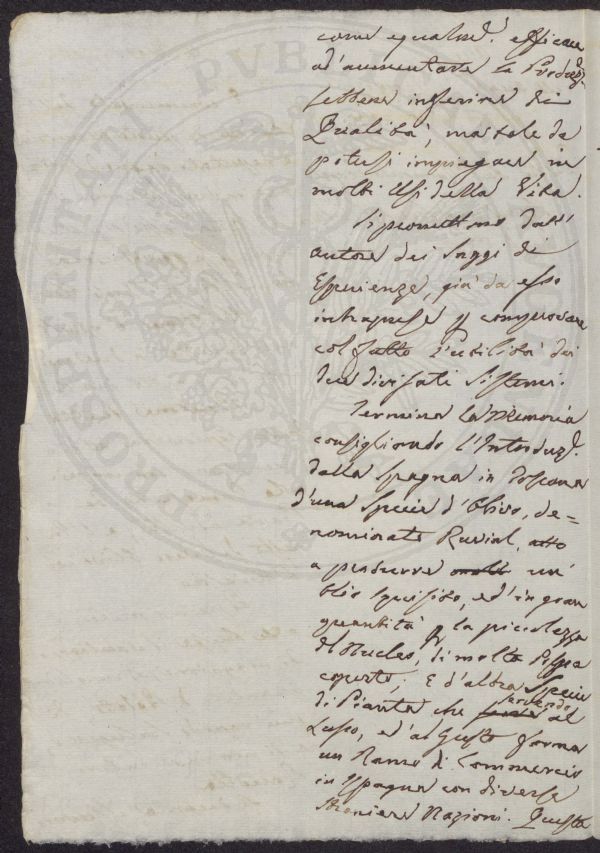 come egualm.e efficace
ad'aumentare la Produz.e
sebbene inferiore di
Qualità, ma tale da
potersi impiegare in
molti Usi della Vita.
Si promettono dall'
autore dei Saggi di
Esperienze, già da esso
intraprese p comprovare
col fatto l'utilità dei
due divisati Sistemi.
Termina la Memoria
consigliando l'Introduz.e
dalla Spagna in Toscana
d'una Specie d'Olivo, de=
nominato Ruvial, atto
a produrre molto un'
Olio squisito, ed' in gran
quantità p la piccolezza
del Nucleo, di molta Polpa
coperto; E d'altra Specie
di Pianta che servendo al
Lusso, ed' al Gusto forma
un Ramo di Commercio
in Spagna con diverse
straniere Nazioni. Questa
PROSPERITATI PVBLICAE